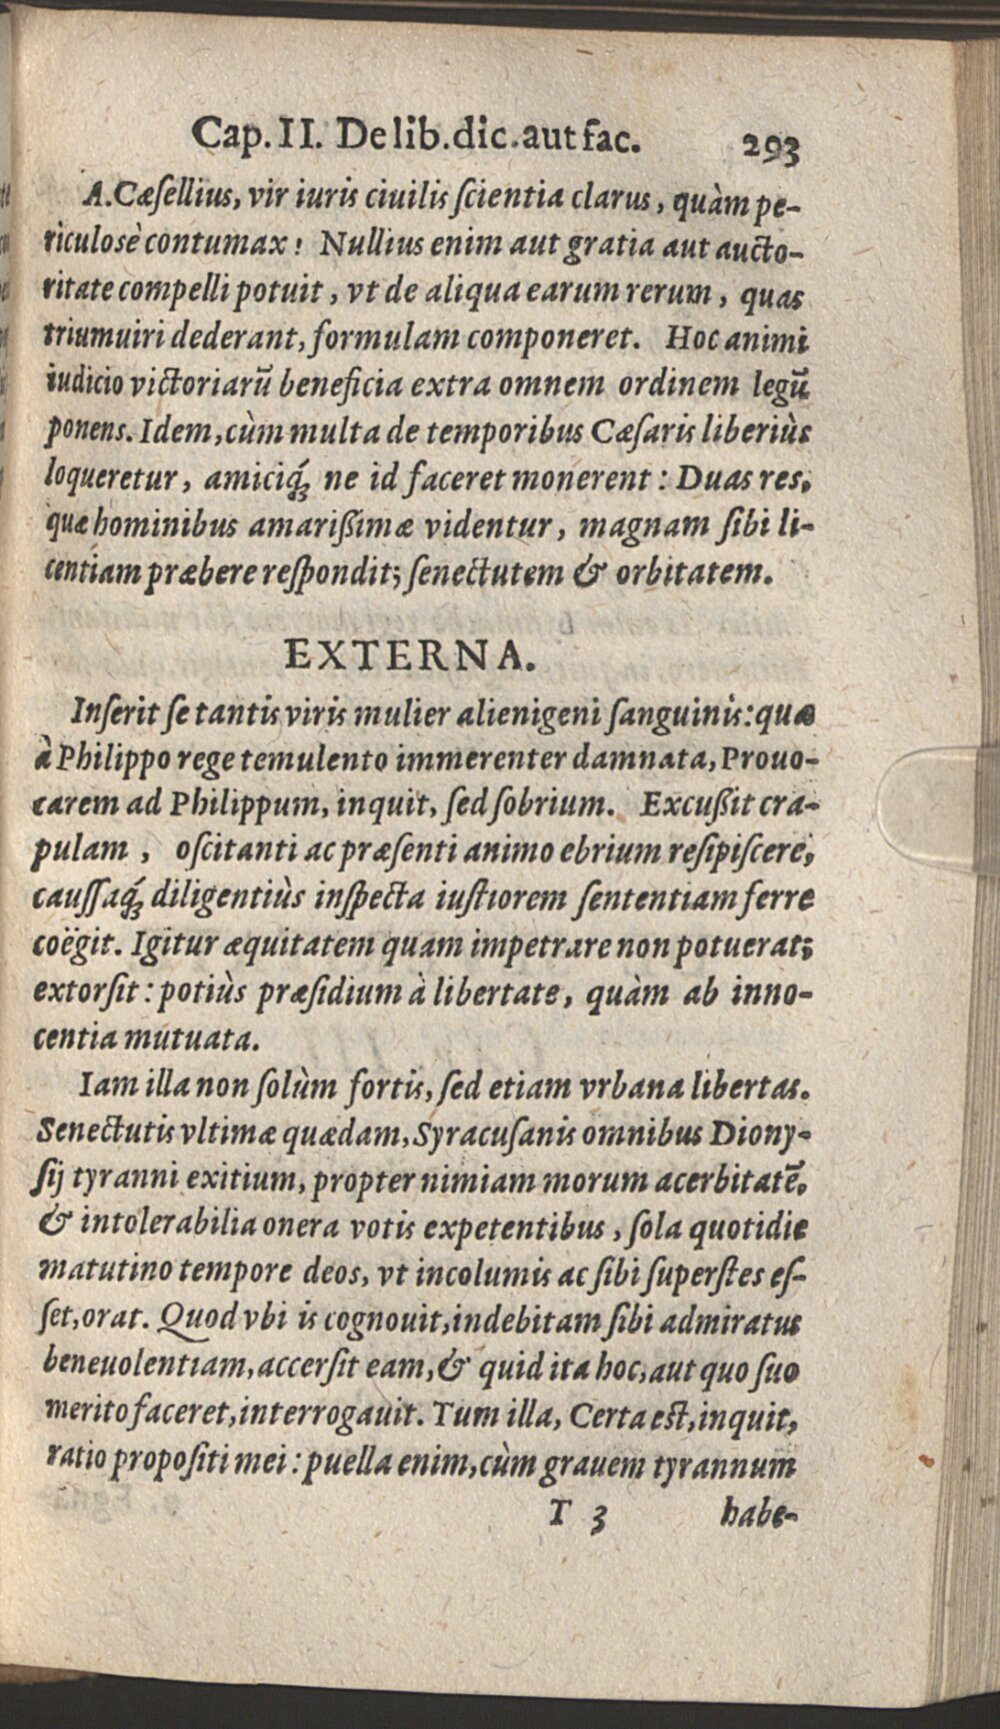 Cap. II. De lib. dic. aut fac. 293
A. Cæſellius, vir iuris ciuilis ſcientia clarus, quàm pe-
riculosè contumax! Nullius enim aut gratia aut aucto-
ritate compelli potuit, vt de aliqua earum rerum, quas
triumuiri dederant, formulam componeret. Hoc animi
iudicio victoriarũ beneficia extra omnem ordinem legũ
ponens. Idem, cùm multa de temporibus Cæſaris liberiùs
loqueretur, amiciq́ꝫ ne id faceret monerent: Duas res,
quæ hominibus amarißimæ videntur, magnam ſibi li-
centiam præbere reſpondit; ſenectutem & orbitatem.
EXTERNA.
Inſerit ſe tantis viris mulier alienigeni ſanguinis: quæ
à Philippo rege temulento immerenter damnata, Prouo-
carem ad Philippum, inquit, ſed ſobrium. Excußit cra-
pulam, oſcitanti ac præſenti animo ebrium reſipiſcere,
cauſſaq́ꝫ diligentiùs inſpecta iuſtiorem ſententiam ferre
coëgit. Igitur æquitatem quam impetrare non potuerat;
extorſit: potiùs præſidium à libertate, quàm ab inno-
centia mutuata.
Iam illa non ſolùm fortis, ſed etiam vrbana libertas.
Senectutis vltimæ quædam, Syracuſanis omnibus Diony-
ſij tyranni exitium, propter nimiam morum acerbitatẽ,
& intolerabilia onera votis expetentibus, ſola quotidie
matutino tempore deos, vt incolumis ac ſibi ſuperſtes eſ-
ſet, orat. Quod vbi is cognouit, indebitam ſibi admiratus
beneuolentiam, accerſit eam, & quid ita hoc, aut quo ſuo
merito faceret, interrogauit. Tum illa, Certa eſt, inquit,
ratio propoſiti mei: puella enim, cùm grauem tyrannum
T 3 habe-